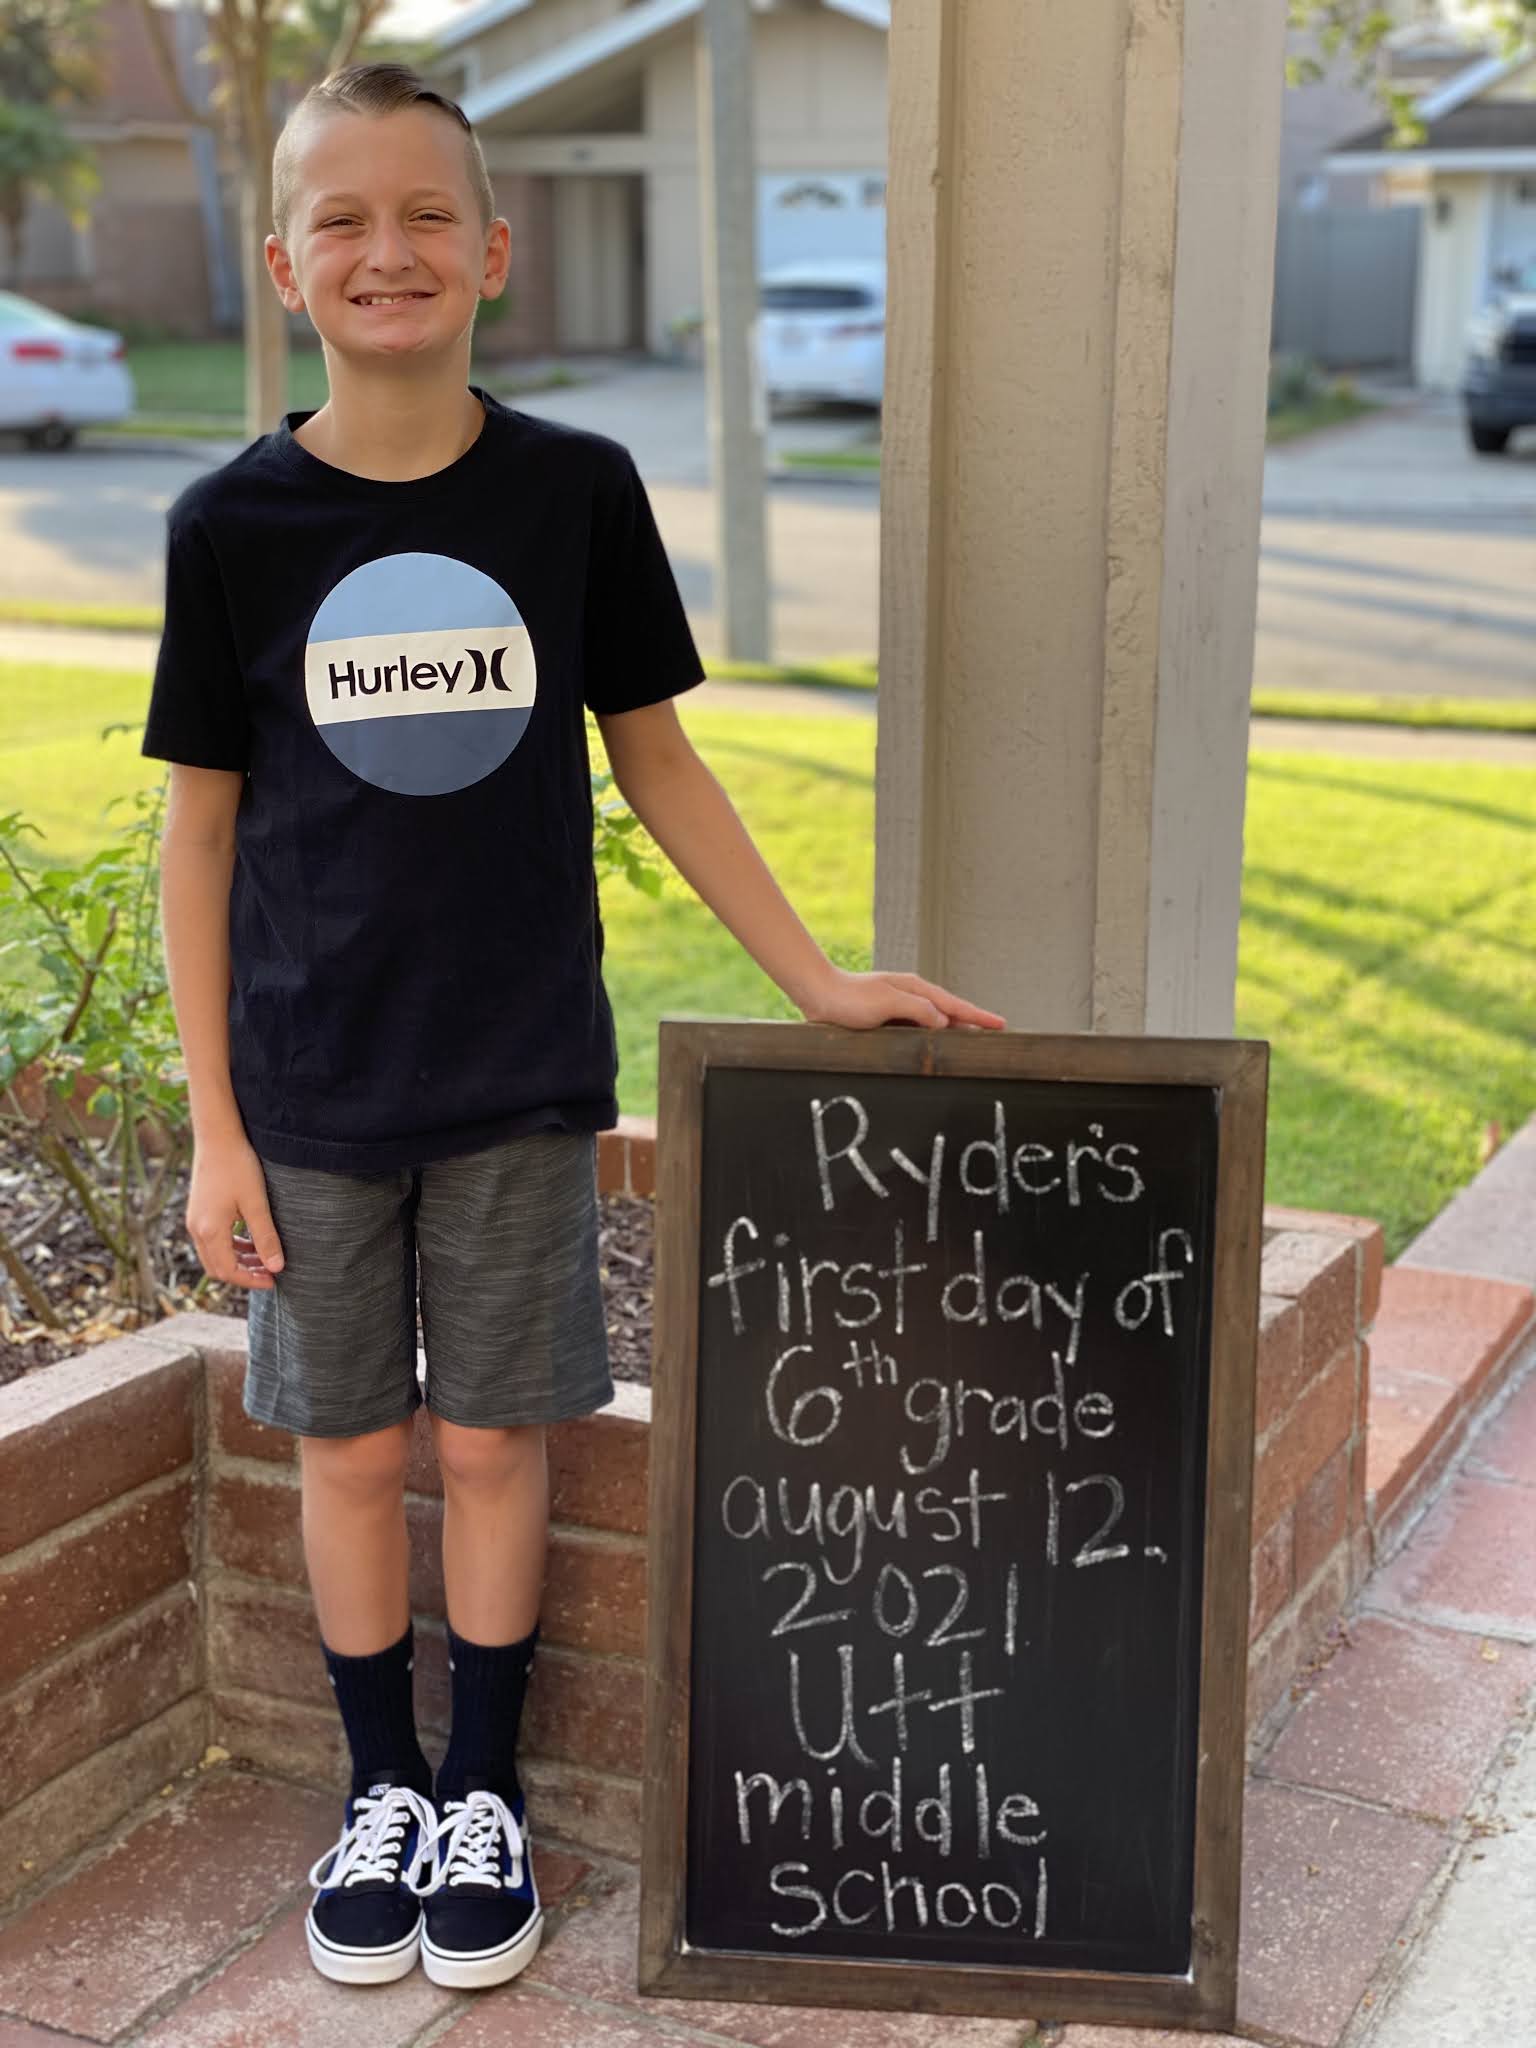 Hurley
Ryder's
first day of
6th grade
august 12,
2021
Utt
middle
school
VANS